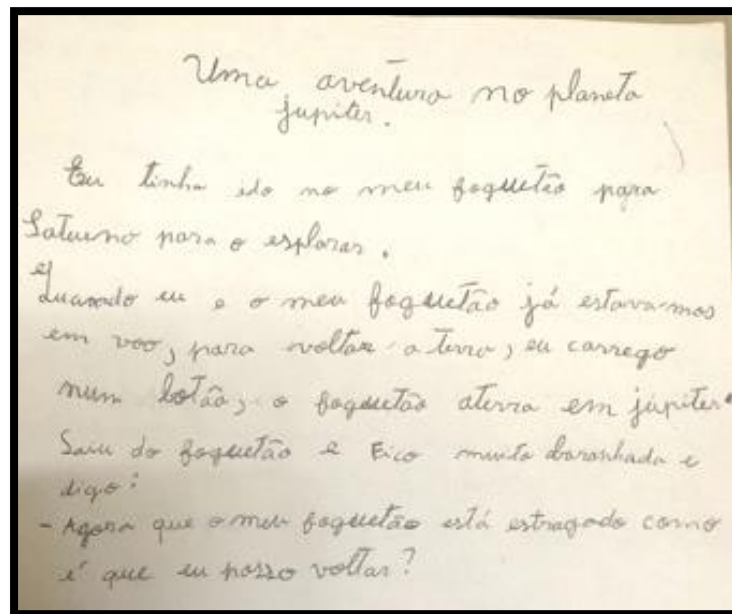 Uma aventura no planeta
jupiter.
Eu tinha ido no meu foguetão para
Saturno para o esplorar.
Quando eu e o meu foguetão já estava-mos
em voo, para voltar a terra, eu carrego
num botão, o foguetão aterra em júpiter.
Saiu do foguetão e Fico muito baranhada e
digo:
- Agora que o meu foguetão está estragado como
é que eu posso voltar?